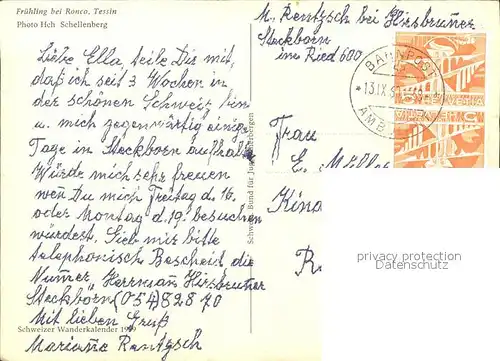 Frühling bei Ronco, Tessin
Photo Hch Schellenberg
M. Rentzsch bei Hirsbrunner
Steckborn
im Ried 600
Liebe Ella, teile Dir mit,
daß ich seit 3 Wochen in
der schönen Schweiz bin
u. mich gegenwärtig einige
Tage in Steckborn aufhalte
Würde mich sehr freuen
wen Du mich Freitag d. 16.
oder Montag d. 19. besuchen
würdest. Gieb mir bitte
telephonisch Bescheit die
Numer, Herrman Hirsbruner
Steckborn (054) 82870
Mit lieben Gruß
Mariane Rentzsch
Schweizer Wanderkalender
Schweiz. Bund für Jugendherbergen
BAHNPOST
13.IX
AMB
HELVETIA
5
Frau
E. Müller
privacy protection
Datenschutz